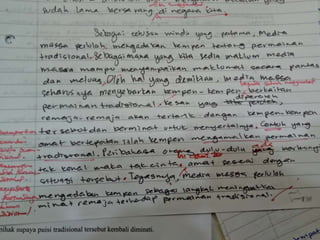 sudah lama bersarang di negara kita
Sebagai cetusan minda yang pertama, media
massa perlulah mengadakan kempen tentang permainan
tradisional. Sebagaimana yang kita sedia maklum media
massa mampu menyampaikan maklumat secara pantas
dan meluas. Oleh hal yang demikian, media massa
seharusnya menyebarkan kempen-kempen berkaitan
permainan tradisional. Kesan yang diperoleh,
remaja-remaja akan tertarik dengan kempen-kempen
tersebut dan berminat untuk menyertainya. Contoh yang
amat bertepatan ialah kempen mengamalkan permainan
tradisional. Peribahasa orang dulu-dulu yang berbunyi
tak kenal maka tak cinta, amat sesuai dengan
situasi tersebut. Tegasnya, media massa perlulah
mengadakan kempen sebagai langkah meningkatkan
minat remaja terhadap permainan tradisional.
pihak supaya puisi tradisional tersebut kembali diminati.